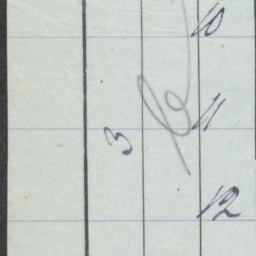 10
3 11
12